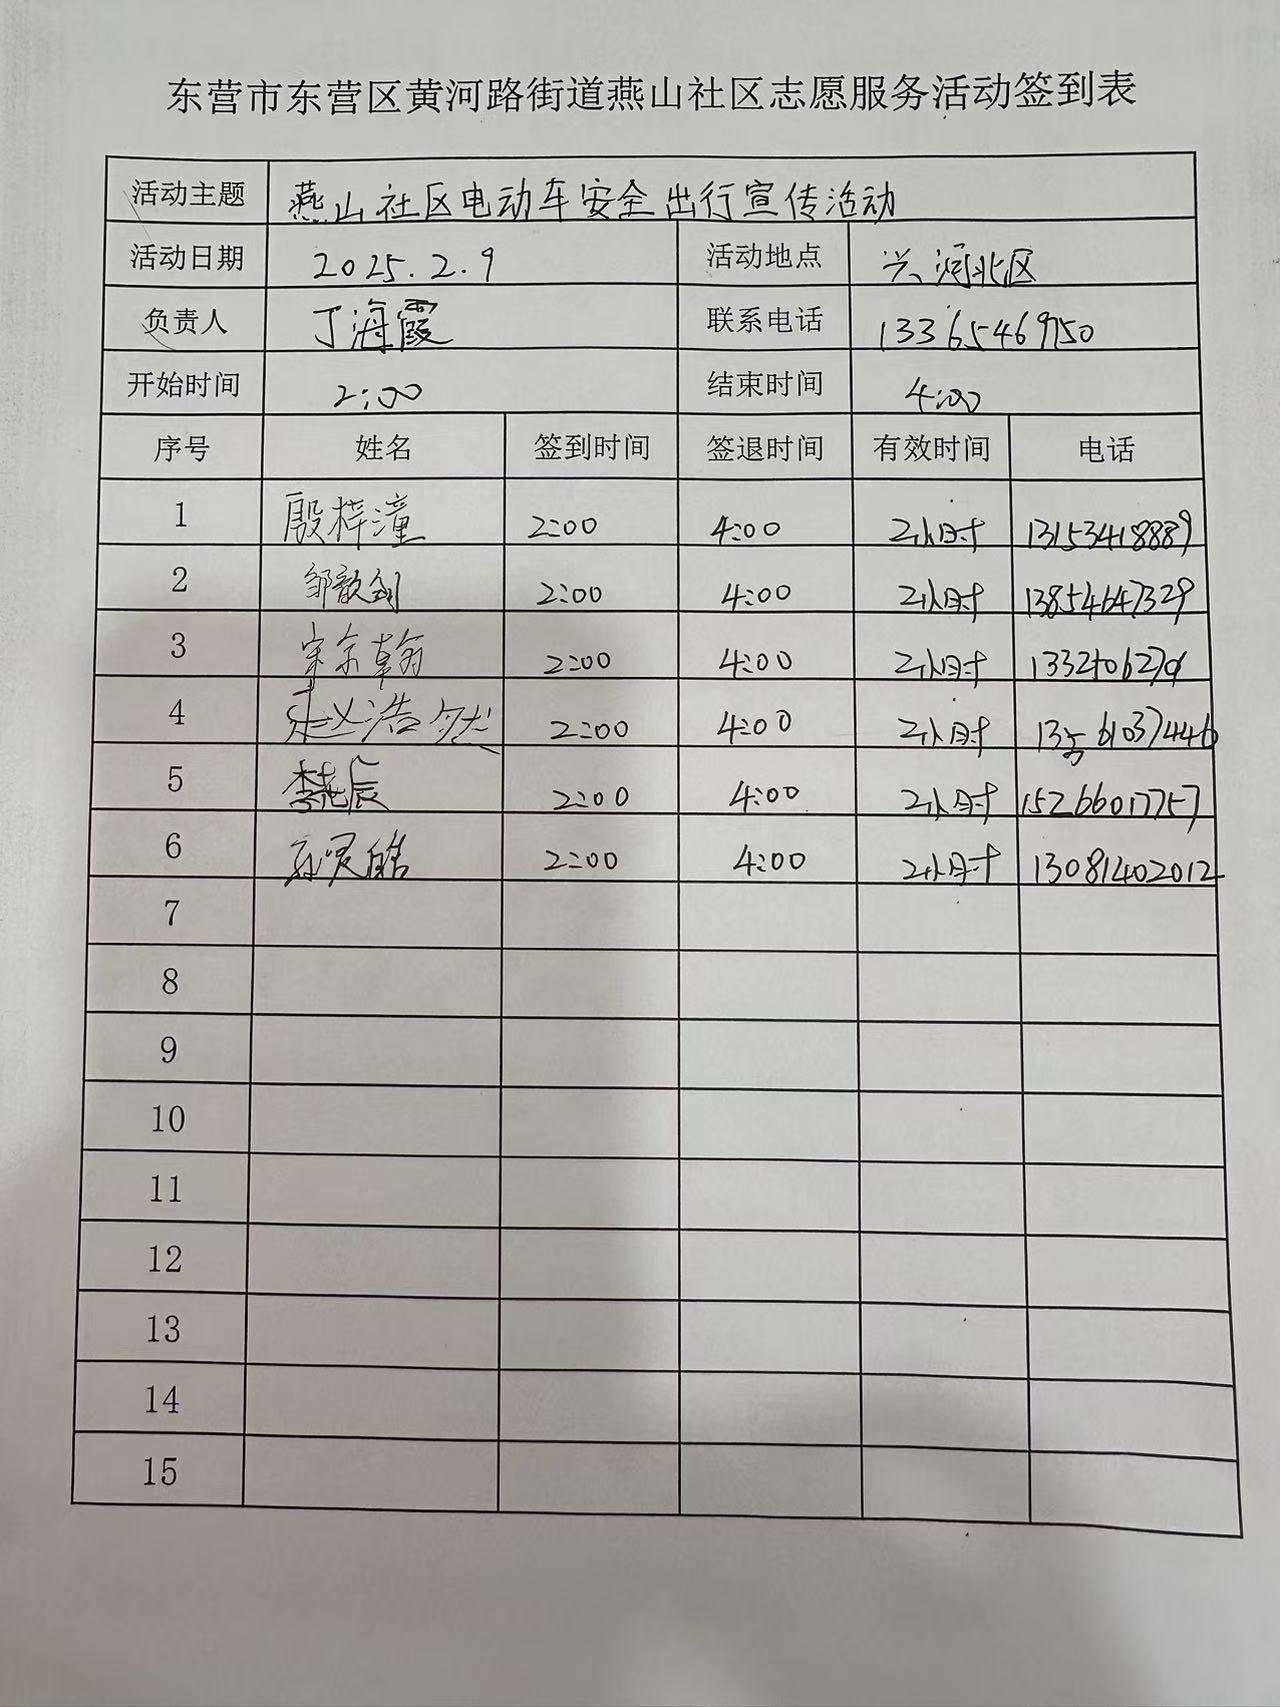 东营市东营区黄河路街道燕山社区志愿服务活动签到表
活动主题 燕山社区电动车安全出行宣传活动
活动日期 2025.2.9 活动地点 兴河北区
负责人 丁海霞 联系电话 13365469750
开始时间 2:00 结束时间 4:00
序号 姓名 签到时间 签退时间 有效时间 电话
1 殷梓潼 2:00 4:00 2小时 13153418889
2 邹歆 2:00 4:00 2小时 13854647329
3 宋尔翰 2:00 4:00 2小时
4 赵浩然 2:00 4:00 2小时
5 李 辰 2:00 4:00 2小时 15266017757
6 皓 2:00 4:00 2小时 13081402012
7
8
9
10
11
12
13
14
15